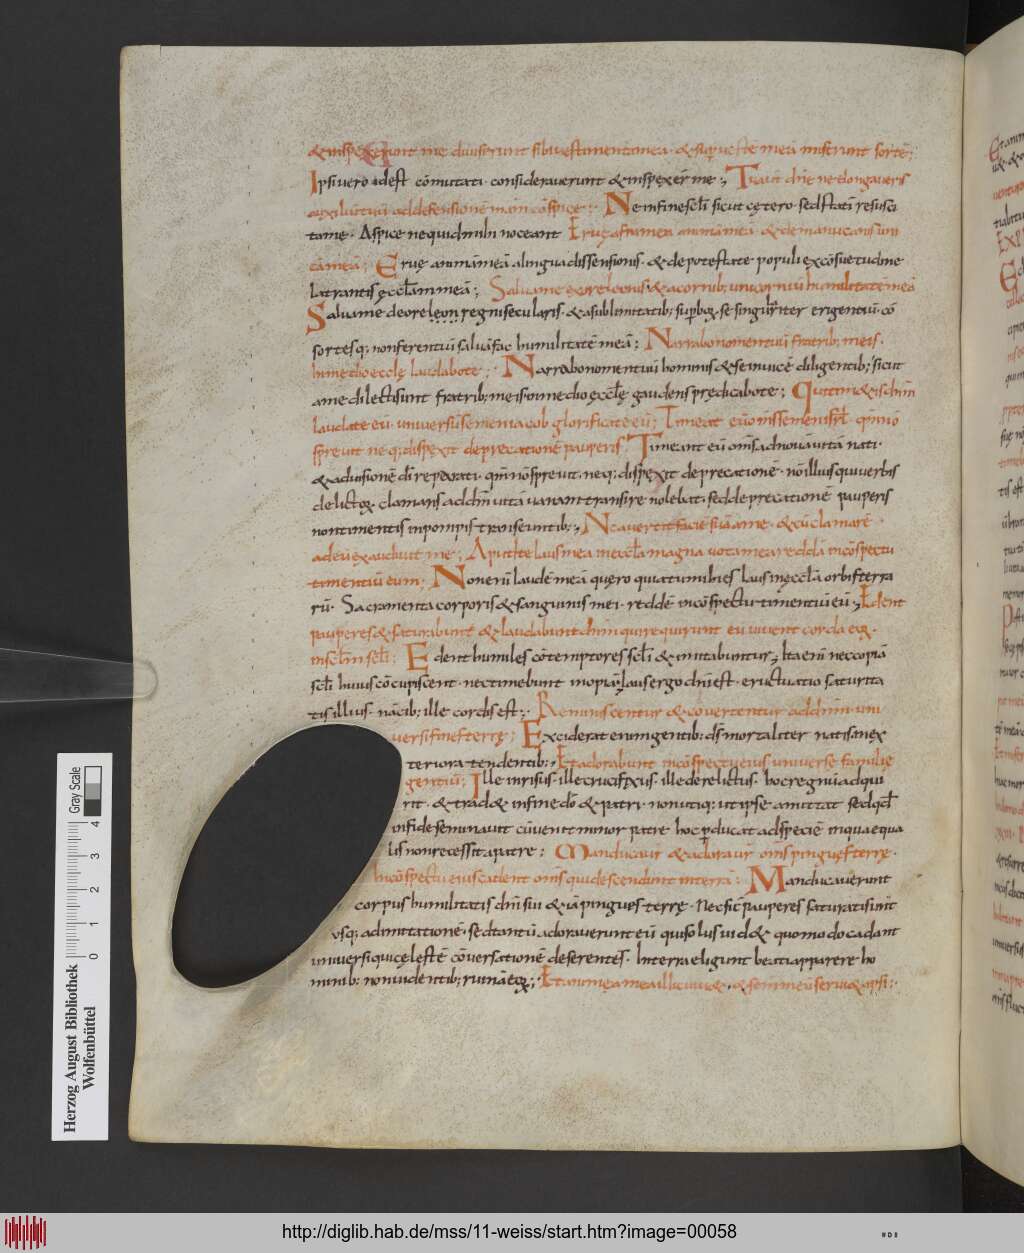 &inspexerunt me. diuiserunt sibi uestimenta mea. & sup ueste mea miserunt sortē;
Ipsi uero idest cōmutati. considerauerunt & inspexer̄ me; Tu aut dn̄e ne elongaueris
auxiliū tuū ad defensionē meā cōspice; Ne in fine sc̄li sicut cętero. sed statī resusci
ta me. Aspice ne quid mihi noceant Erue a framea animā meā. & de manu canis uni
cā meā; Erue animā meā a lingua dissensionis. & de potestate populi ex cōsuetudine
latrantis ęccl̄am meā; Salua me ex ore leonis & a cornib; unicorniū humilitatē meā
Salua me de ore leonū regni secularis. & a sublimitatib; supboꝝ. se singulr̄iter erigentiū. cō
sortesq; non ferentiū salua fac humilitatē meā; Narrabo nomen tuū fratrib; meis.
In medio ecclę laudabo te; Narrabo nomen tuū hominis & se inuicē diligentib; sicut
a me dilecti sunt fratrib; meis in medio ęccl̄ę gaudens predicabo te; Qui tim&is dn̄m
laudate eū. uniuersū semen iacob glorificate eū; Timeat eū om̄e semen isrl̄. qm̄ nō
spreuit neq; dispexit deprecationē pauperis. Timeant eū om̄s ad nouā uitā nati.
& ad uisionē dī reparati. qm̄ nō spreuit. neq; dispexit deprecationē. nō illius qui uerbis
delictoꝝ. clamans ad dn̄m uitā uanam transire nolebat. sed deprecationē pauperis
non timentis in pompis transeuntib; Ne auertit faciē suā a me. & cū clamarē
ad eū exaudiuit me; Apud te laus mea in eccl̄a magna uota mea reddā in cōspectu
timentiū eum; Non enī laudē meā quęro quia tu mihi es laus in ęccl̄a orbis terra
rū. Sacramenta corporis & sanguinis mei. reddē in cōspectu timentiū eū; Edent
pauperes & saturabunt̄ & laudabunt dn̄m qui requirunt eū uiuent corda eoꝝ.
in sc̄lm sc̄li; Edent humiles cōtemptores sc̄li & imitabuntur; Ita enī nec copiā
sc̄li huius cōcupiscent. nec timebunt inopiā; laus ergo dn̄i est. eructuatio saturita
tis illius. nā cib; ille cordis est; Reminiscentur & cōuertentur ad dn̄m. uni
uersi fines terrę; Exciderat enim gentib; ds̄ mortaliter natis in ex
teriora tendentib; Et adorabunt in cōspectu eius uniuersę familię
gentiū; Ille inrisus. ille crucifixus. ille derelictus. hoc regnū adqui
rit. & trad& in fine dō & patri. non utiq; ut ipse amittat sed qd̄
in fide seminauit cū uenit minor patre hoc pducat ad speciē in qua equa
lis non recessit a patre; Manducauer̄ & adorauer̄ om̄s pingues terrę.
In cōspectu eius cadent om̄s qui descendunt in terrā; Manducauerunt
corpus humilitatis dn̄i sui & iā pingues terrę. Nec sic̄ pauperes saturati sunt
usq; ad imitationē. sed tantū adorauerunt eū qui solus uid& quomodo cadant
uniuersi qui cęlestē cōuersationē deserentes. In terra eligunt beati apparere ho
minib; non uidentib; ruinā eoꝝ; Et anima mea illi uiu&. & semen meū serui& ipsi;
Herzog August Bibliothek
Wolfenbüttel
Gray Scale
0 1 2 3 4
http://diglib.hab.de/mss/11-weiss/start.htm?image=00058